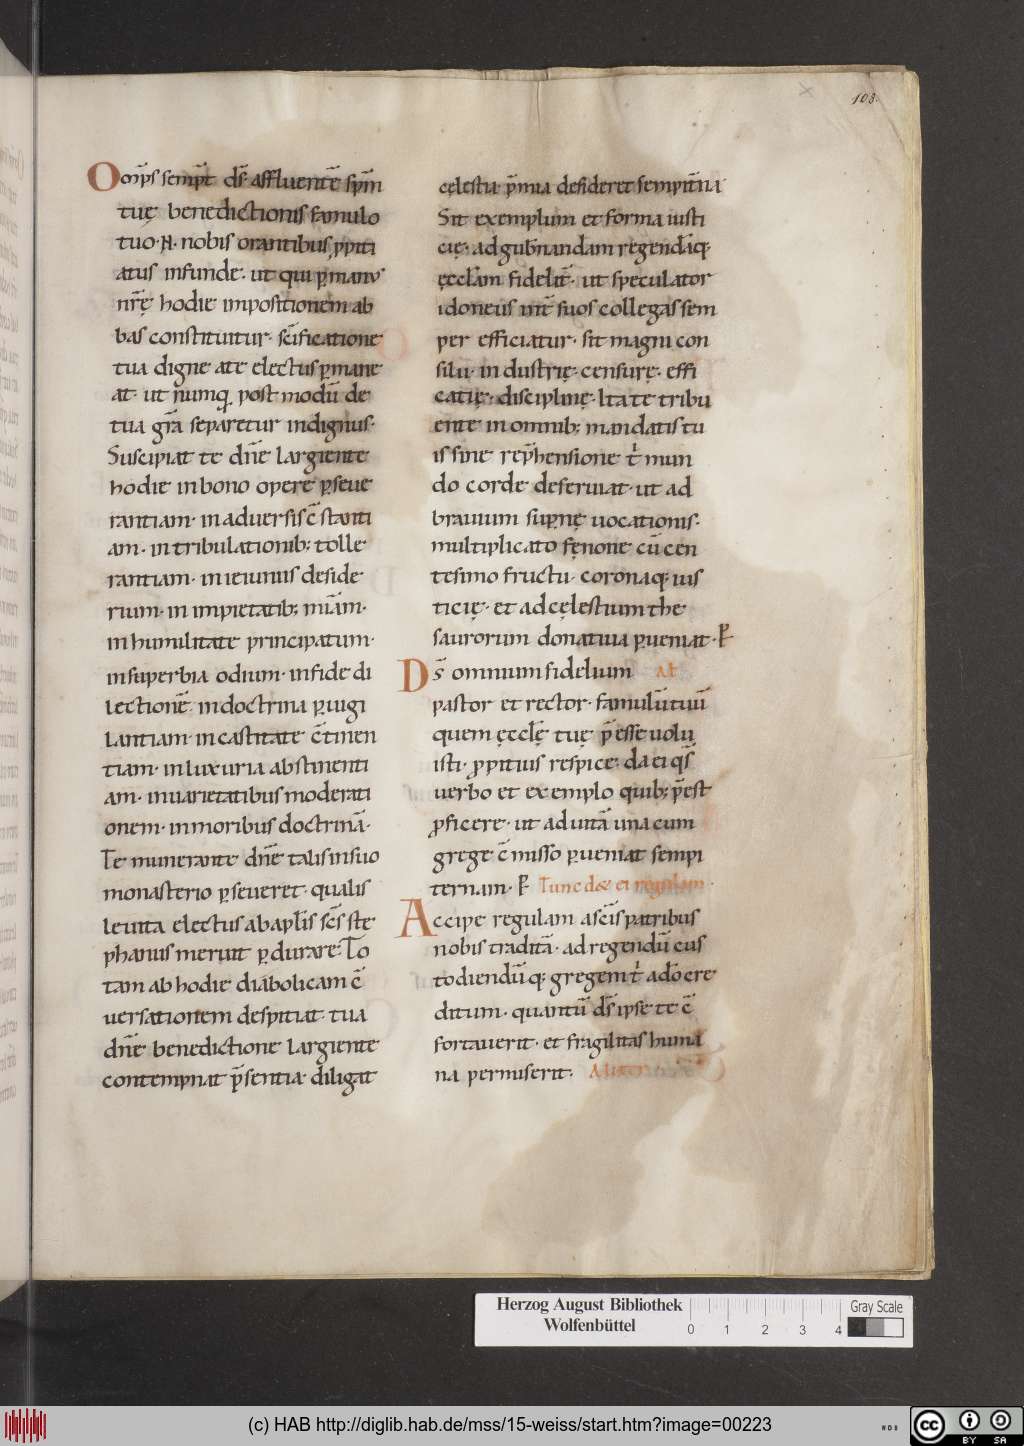 108.
Om̅ps semp̅t d̅s affluente̅ sp̅m
tuę benedictionis famulo
tuo· N· nobis orantibus ꝓpiti
atus infunde· ut qui ꝑ manu
nr̅ę hodie impositionem ab
bas constituitur· sc̅ificatione
tua digne a te electus ꝑmane
at· ut numq̨ postmodu̅ de
tua gr̅a separetur indignus·
Suscipiat te dn̅e largiente
hodie in bono opere ꝑseue
rantiam· in aduersis c̅stanti
am· in tribulationib; tolle
rantiam· in ieiuniis deside
rium· in impietatib; mi̅am·
in humilitate principatum·
in superbia odium· in fide di
lectione̅· in doctrina ꝑuigi
lantiam· in castitate c̅tinen
tiam· in luxuria abstinenti
am· in uarietatibus moderati
onem· in moribus doctrina̅·
Te munerante dn̅e talis in suo
monasterio ꝑseueret· qualis
leuita electus ab apl̅is sc̅s ste
phanus meruit ꝑdurare· To
tam ab hodie diabolicam c̅
uersationem despitiat· tua
dn̅e benedictione largiente
contempnat p̅sentia· diligat
cęlestia· p̅mia desideret sempit̅na·
Sit exemplum et forma iusti
cię· ad gub̅nandam regenda̅q·
ęccl̅am fidelit̅· ut speculator
idoneus int̅ suos collegas sem
per efficiatur· sit magni con
silii· industrię· censurę· effi
catię· disciplinę· Ita te tribu
ente in omnib; mandatis tu
is sine rep̅hensione t̅ mun
do corde deseruiat· ut ad
brauium supernę uocationis·
multiplicato fęnore cu̅ cen
tesimo fructu· coronaq· ius
ticię· et ad cęlestium the
saurorum donatiua ꝑueniat· ꝑ
Ds̅ omnium fidelium Al̅
pastor et rector· famulu̅ tuu̅
quem ęccle̅ę tuę p̅esse uolu
isti· ꝓpitius respice· da ei qs̅
uerbo et exemplo quib; p̅est
ꝓficere· ut ad uita̅ una cum
grege c̅misso ꝑueniat sempi
ternam· ꝑ Tunc det ei regulam·
Accipe regulam a sc̅is patribus
nobis tradita̅· ad regendu̅ cus
todiendu̅q; gregem t̅ a do̅ cre
ditum· quantu̅ ds̅ ipse te c̅
fortauerit· et fragilitas huma
na permiserit· Aliter
Herzog August Bibliothek
Wolfenbüttel
0 1 2 3 4
Gray Scale
(c) HAB http://diglib.hab.de/mss/15-weiss/start.htm?image=00223
cc BY SA